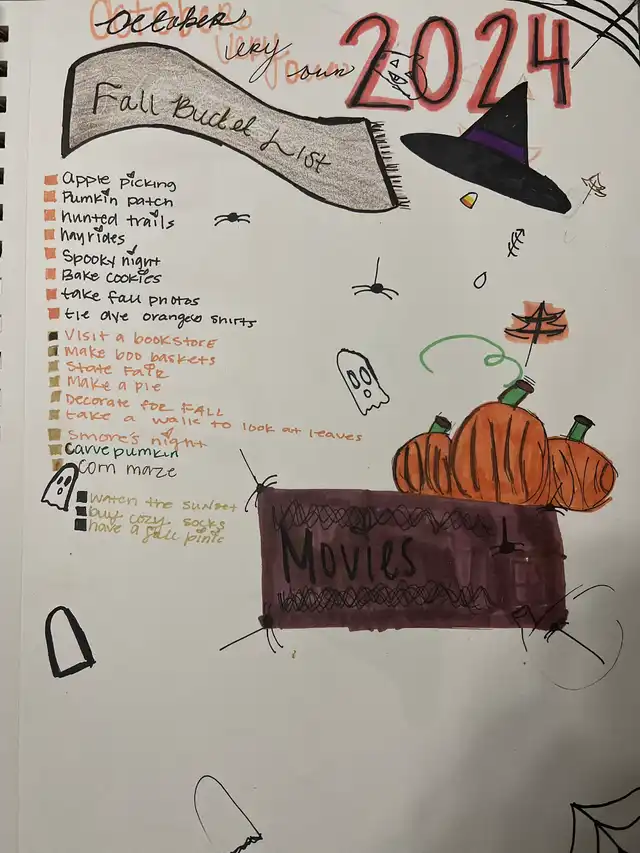 October
very our
2024
Fall Bucket List
Apple picking
Pumkin patch
hunted trails
hayrides
Spooky night
Bake cookies
take fall photos
tie dye orangeo shirts
Visit a bookstore
Make boo baskets
State Fair
Make a pie
Decorate for FALL
take a walk to look at leaves
Smore's night
Carve pumkin
Corn maze
watch the sunset
buy cozy socks
have a fall pinic
Movies